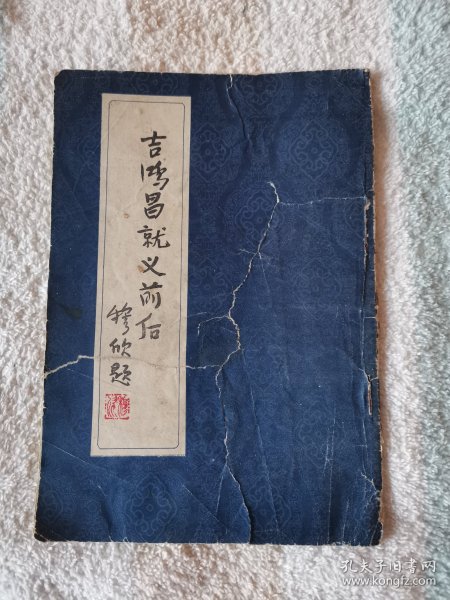 吉鸿昌就义前后
穆欣题
孔夫子旧书网
www.kongfz.com